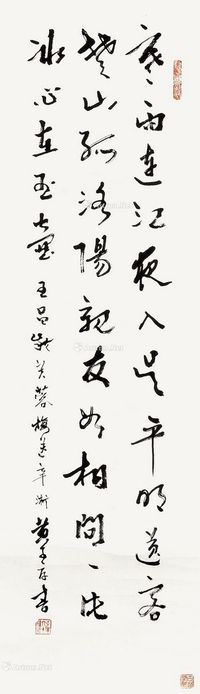 寒雨連江夜入吳平明送客
楚山孤洛陽親友如相問一片
冰心在玉壺 王昌齡芙蓉樓送辛漸 黄書